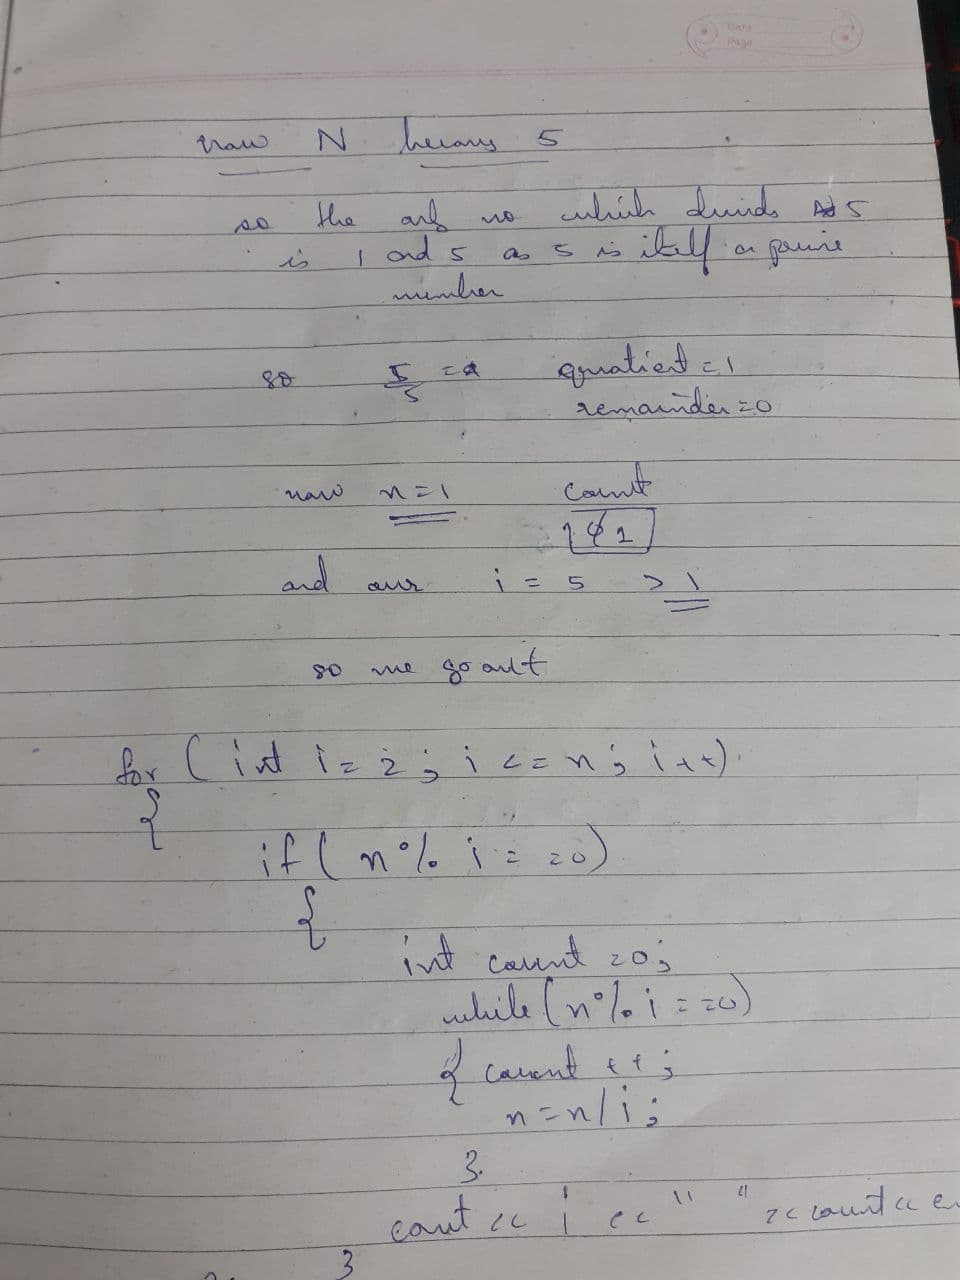 Date
Page
now N becomes 5
so the only no which divids 5
is 1 and 5 as 5 is itself a prime
number
so 5/5 = quotient = 1
remainder = 0
now n = 1 count
1
and our i = 5 > 1
so we go out
for (int i = 2; i <= n; i++)
{
if (n % i == 0)
{
int count = 0;
while (n % i == 0)
{ count ++;
n = n/i;
}
cout << i << " " << count << en
}